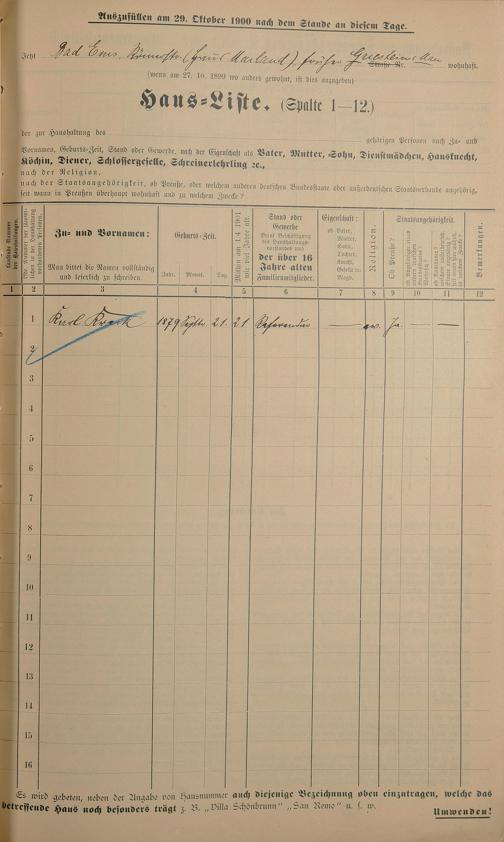 Auszufüllen am 29. Oktober 1900 nach dem Stande an diesem Tage.
Jetzt Bad Ems, (Haus Mailand), früher wohnhaft.
Straße Nr.
(wenn am 27. 10. 1899 wo anders gewohnt, ist dies anzugeben)
Haus-Liste. (Spalte 1—12.)
der zur Haushaltung des gehörigen Personen nach Zu- und
Vornamen, Geburts-Zeit, Stand oder Gewerbe, nach der Eigenschaft als Vater, Mutter, Sohn, Dienstmädchen, Hausknecht,
Köchin, Diener, Schlossergeselle, Schreinerlehrling ꝛc.,
nach der Religion,
nach der Staatsangehörigkeit, ob Preuße, oder welchem anderen deutschen Bundesstaate oder außerdeutschen Staatsverbande angehörig,
seit wann in Preußen überhaupt wohnhaft und zu welchem Zwecke?
Zu- und Vornamen:
Man bittet die Namen vollständig
und leserlich zu schreiben.
Geburts-Zeit.
Jahr. Monat. Tag.
Mithin am 1/4 1901
wie viel Jahre alt.
Stand oder
Gewerbe
der über 16
Jahre alten
Familienmitglieder.
Eigenschaft:
ob Vater,
Mutter,
Sohn,
Tochter,
Knecht,
Geselle u.
Magd.
Religion.
Staatsangehörigkeit.
Ob Preuße?
Bemerkungen.
1 2 3 4 5 6 7 8 9 10 11 12
1 Karl 1879 Septbr. 21. 21 Referendar — ev. Ja. — —
2
3
4
5
6
7
8
9
10
11
12
13
14
15
16
Es wird gebeten, neben der Angabe von Hausnummer auch diejenige Bezeichnung oben einzutragen, welche das
betreffende Haus noch besonders trägt z. B. „Villa Schönbrunn" „San Remo" u. s. w.
Umwenden!